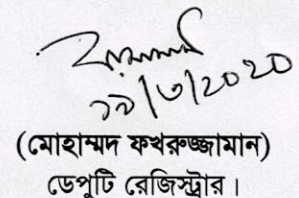 ১৯/৩/২০২০
(মোহাম্মদ ফখরুজ্জামান)
ডেপুটি রেজিস্ট্রার।